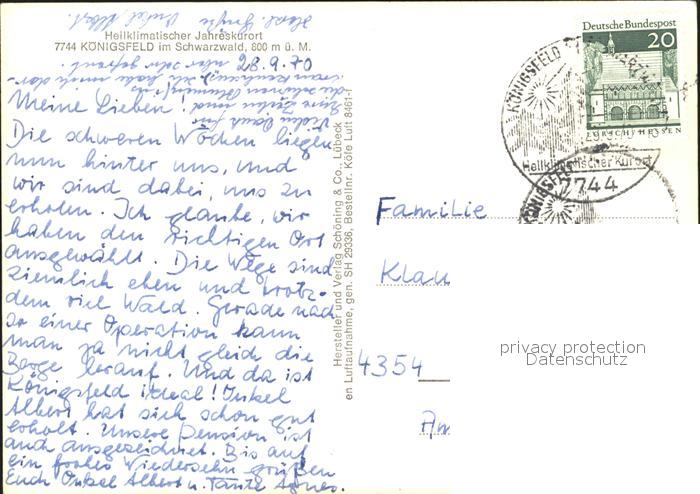 Herzl. Grüße Onkel Albert
Heilklimatischer Jahreskurort
7744 KÖNIGSFELD im Schwarzwald, 800 m ü. M.
28.9.70
Vielen Dank für
Eure Zeilen und
Meine Lieben!
Die schweren Wochen liegen
nun hinter uns, und
wir sind dabei, uns zu
erholen. Ich glaube, wir
haben den richtigen Ort
ausgewählt. Die Wege sind
ziemlich eben und trotz-
dem viel Wald. Gerade nach
so einer Operation kann
man ja nicht gleich die
Berge herauf. Und da ist
Königsfeld ideal! Onkel
Albert hat sich schon gut
erholt. Unsere Pension ist
auch ausgezeichnet. Bis auf
ein frohes Wiedersehn grüßen
Euch Onkel Albert u. Tante Agnes.
Hersteller und Verlag Schöning & Co., Lübeck
en Luftaufnahme, gen. SH 29336, Bestellnr. Köfe Luft 8461-f
Deutsche Bundespost
20
LORSCH/HESSEN
KÖNIGSFELD
Heilklimatischer Kurort
7744
KÖNIGSFELD
Familie
Klau
4354
Am
privacy protection
Datenschutz